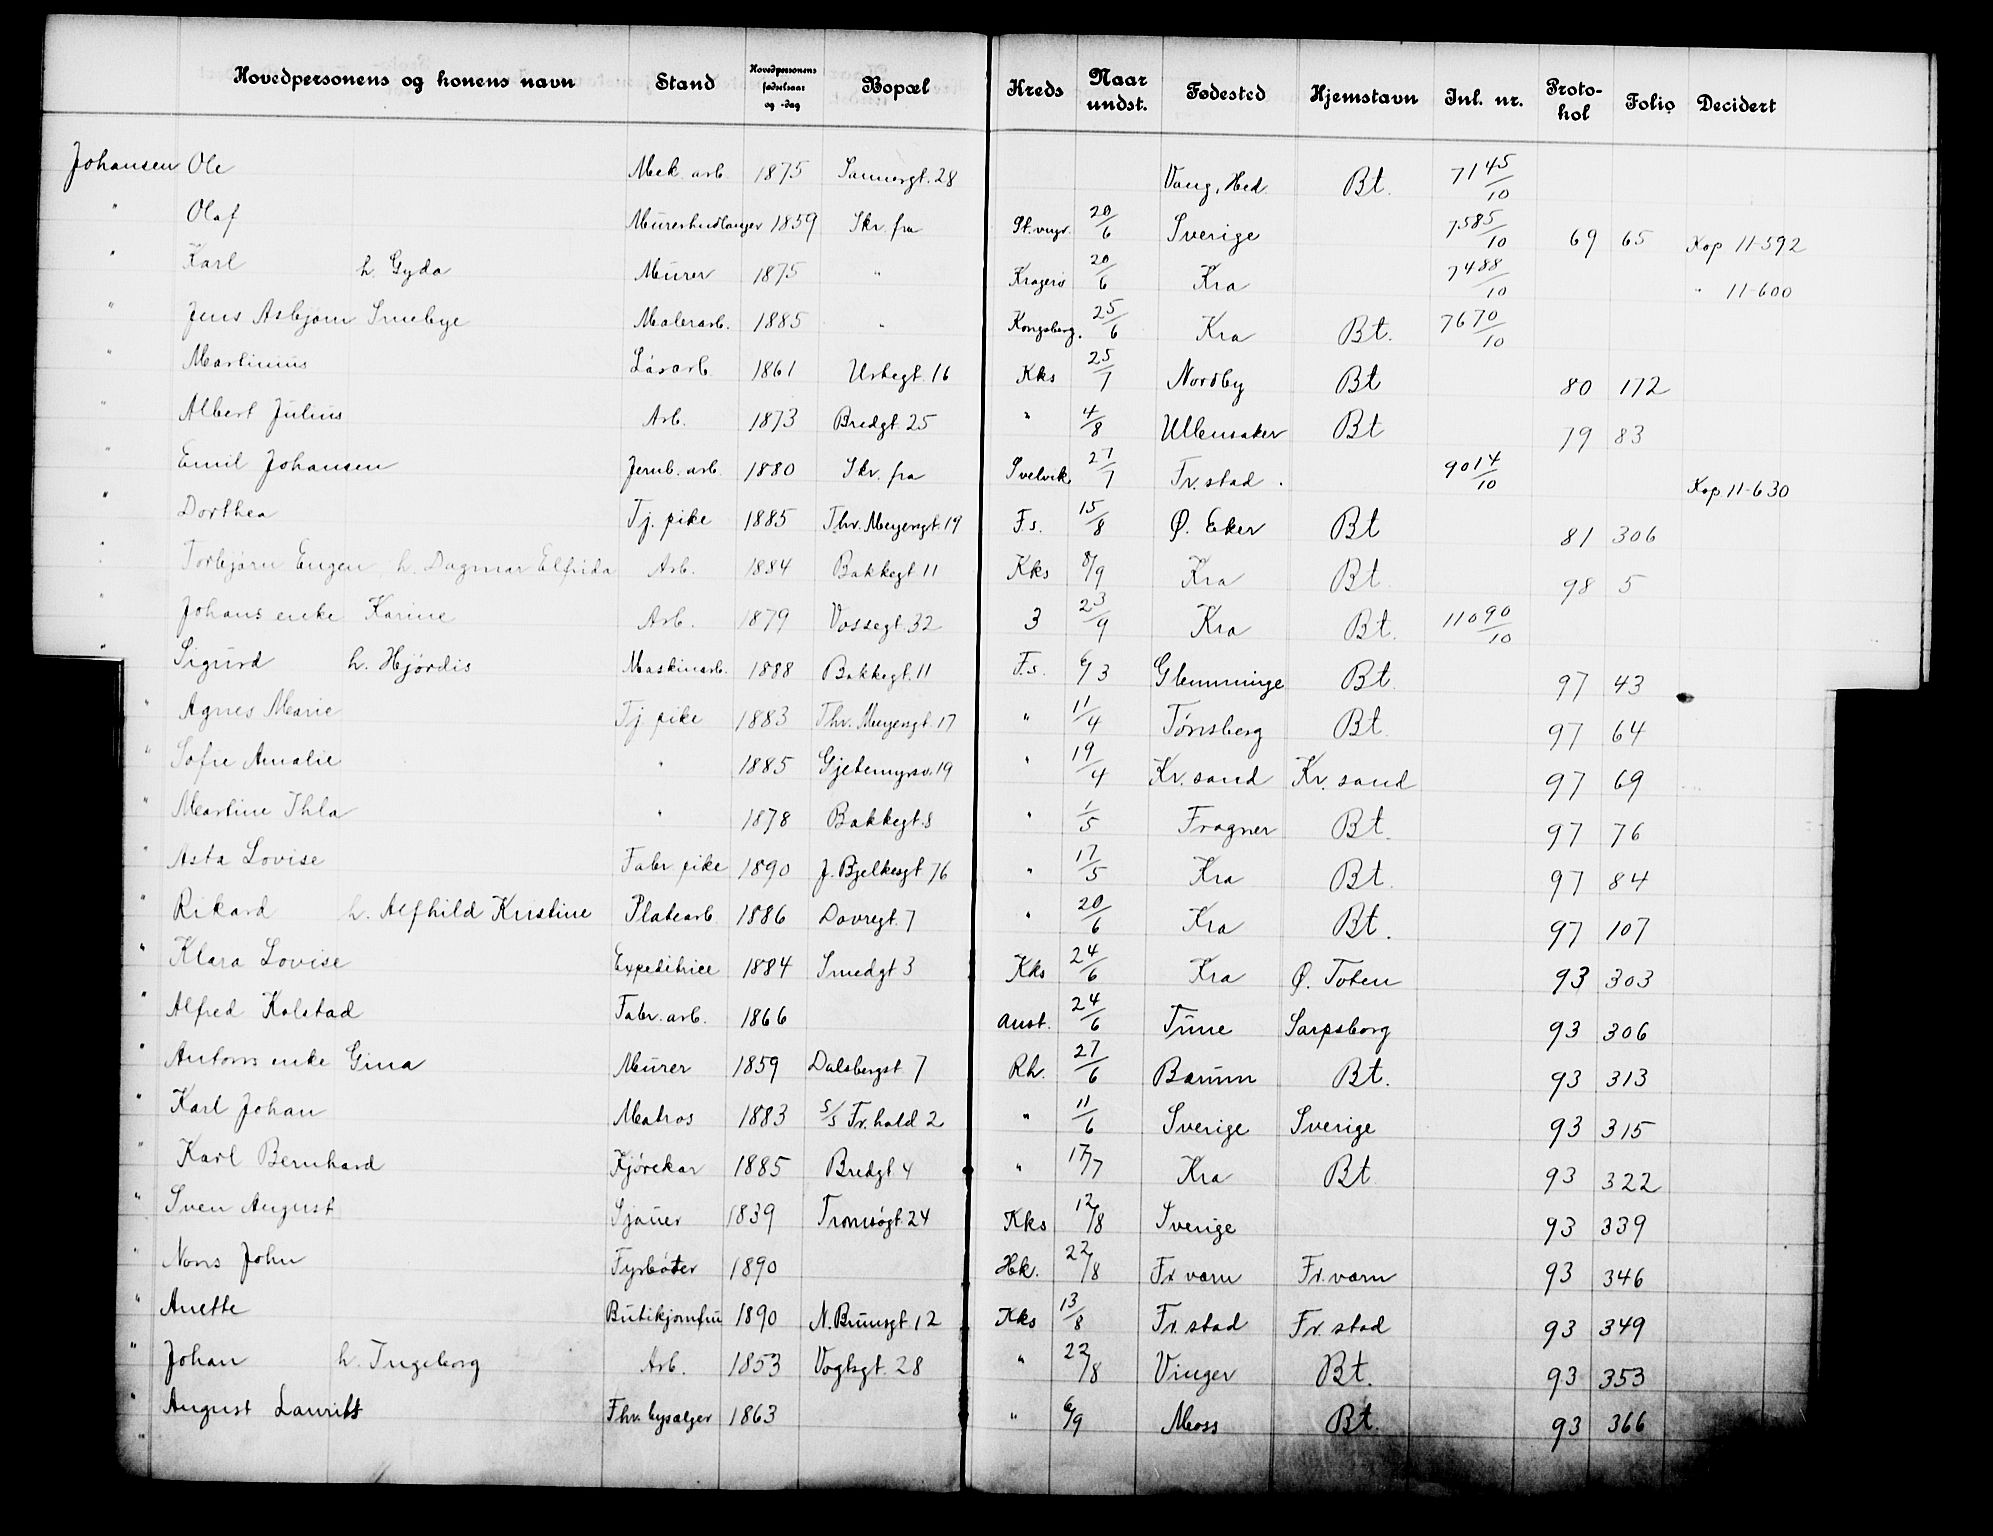 Hovedpersonens og konens navn Stand Hovedpersonens fødselsaar og -dag Bopæl Kreds Naar undst. Fødested Hjemstavn Inl. nr. Protokol Folio Decidert
Johansen Ole Mek. arb. 1875 Sannergt. 28 Vang, Hed. Bt. 7145/10
" Olaf Murerhndlanger 1859 Skr. fra 20/6 Sverige 7585/10 69 65 Kop 11-592
" Karl h. Gyda Murer 1875 " Kragerø 20/6 Kra 7488/10 " 11-600
" Jens Asbjørn Smebye Malerarb. 1885 " Kongsberg. 25/6 Kra Bt. 7670/10
" Martinius Løsarb. 1861 Urtegt. 16 Kks 25/7 Nordby Bt 80 172
" Albert Julius Arb. 1873 Bredgt. 25 " 4/8 Ullensaker Bt 79 83
" Emil Johansen Jernb. arb. 1880 Skr. fra Svelvik 27/7 Fr.stad. 9014/10 Kop 11-630
" Dorthea Tj. pike 1885 Thv. Meyersgt. 19 F.s. 15/8 Ø. Eker Bt 81 306
" Torbjørn Eugen h. Dagmar Elfrida Arb. 1884 Bakkegt 11 Kks 8/9 Kra Bt. 98 5
" Johans enke Karine Arb. 1879 Vossegt. 32 3 23/9 Kra Bt. 11090/10
" Sigurd h. Hjørdis Maskinarb. 1888 Bakkegt. 11 F.s. 6/3 Glemminge Bt. 97 43
" Agnes Marie Tj. pike 1883 Thv. Meyersgt. 17 " 11/4 Tønsberg Bt. 97 64
" Sofie Amalie " 1885 Gjetemyrsv. 19 " 19/4 Kr.sand Kr. sand 97 69
" Martine Thla " 1878 Bakkegt. 8 " 1/5 Fragner Bt. 97 76
" Asta Lovise Fabr pike 1890 J. Bjelkesgt 76 " 17/5 Kra Bt. 97 84
" Rikard h. Alfhild Kristine Platearb. 1886 Dovregt. 7 " 20/6 Kra Bt. 97 107
" Klara Lovise Expeditrice 1884 Smedgt 3 Kks 24/6 Kra Ø. Toten 93 303
" Alfred Kolstad Fabr. arb. 1866 Aust. 24/6 Tune Sarpsborg 93 306
" Antons enke Gina Murer 1859 Dalsbergst 7 Rh. 27/6 Bærum Bt. 93 313
" Karl Johan Matros 1883 S/S Fr.hald 2 " 11/6 Sverige Sverige 93 315
" Karl Bernhard Kjørekar 1885 Bredgt 4 " 17/7 Kra Bt 93 322
" Sven August Sjauer 1839 Tromsøgt. 24 Kks 12/8 Sverige 93 339
" Nors John Fyrbøter 1890 Hk. 22/8 Fr.værn Fr.værn 93 346
" Anette Butikjomfru 1890 N. Brunsgt 12 Kks 13/8 Fr.stad Fr. stad 93 349
" Johan h. Ingeborg Arb. 1853 Vogtsgt. 28 " 22/8 Vinger Bt. 93 353
" August Laurits Fhv. bysælger 1863 " 6/9 Moss Bt. 93 366
"